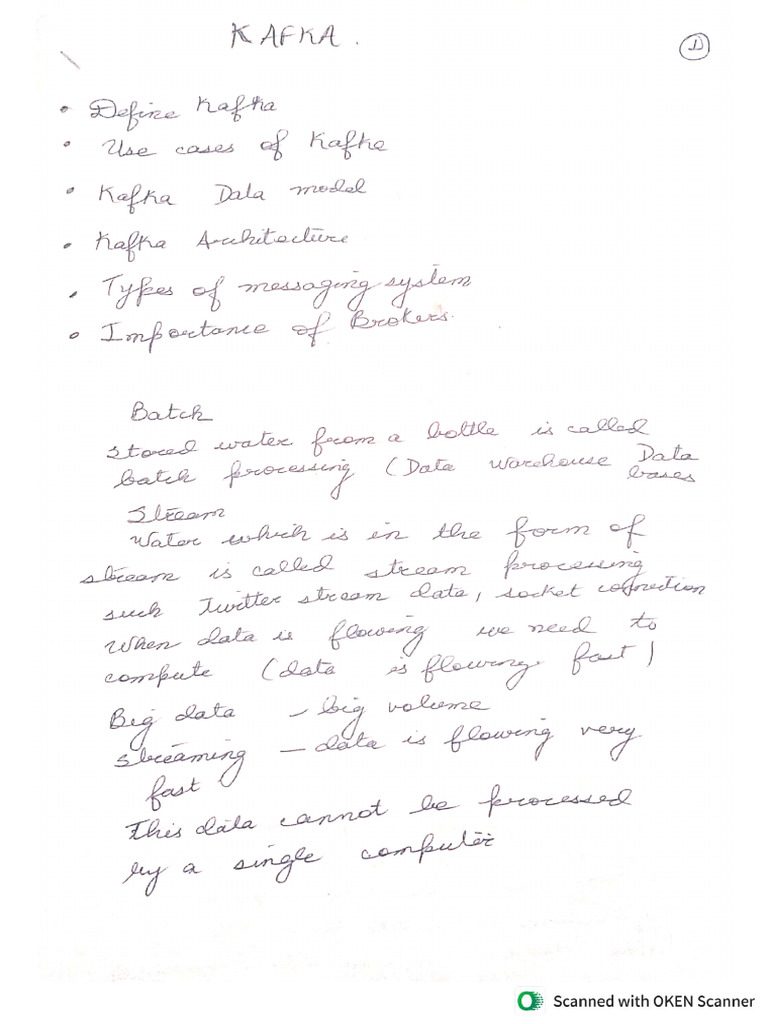 KAFKA.
1
• Define Kafka
• Use cases of Kafka
• Kafka Data model
• Kafka Architecture
• Types of messaging system
• Importance of Brokers.
Batch
stored water from a bottle is called
batch processing (Data warehouse Data
bases
Stream
Water which is in the form of
stream is called stream processing
such Twitter stream data, socket connection
When data is flowing we need to
compute (data is flowing fast)
Big data – big volume
streaming – data is flowing very
fast
This data cannot be processed
by a single computer
Scanned with OKEN Scanner